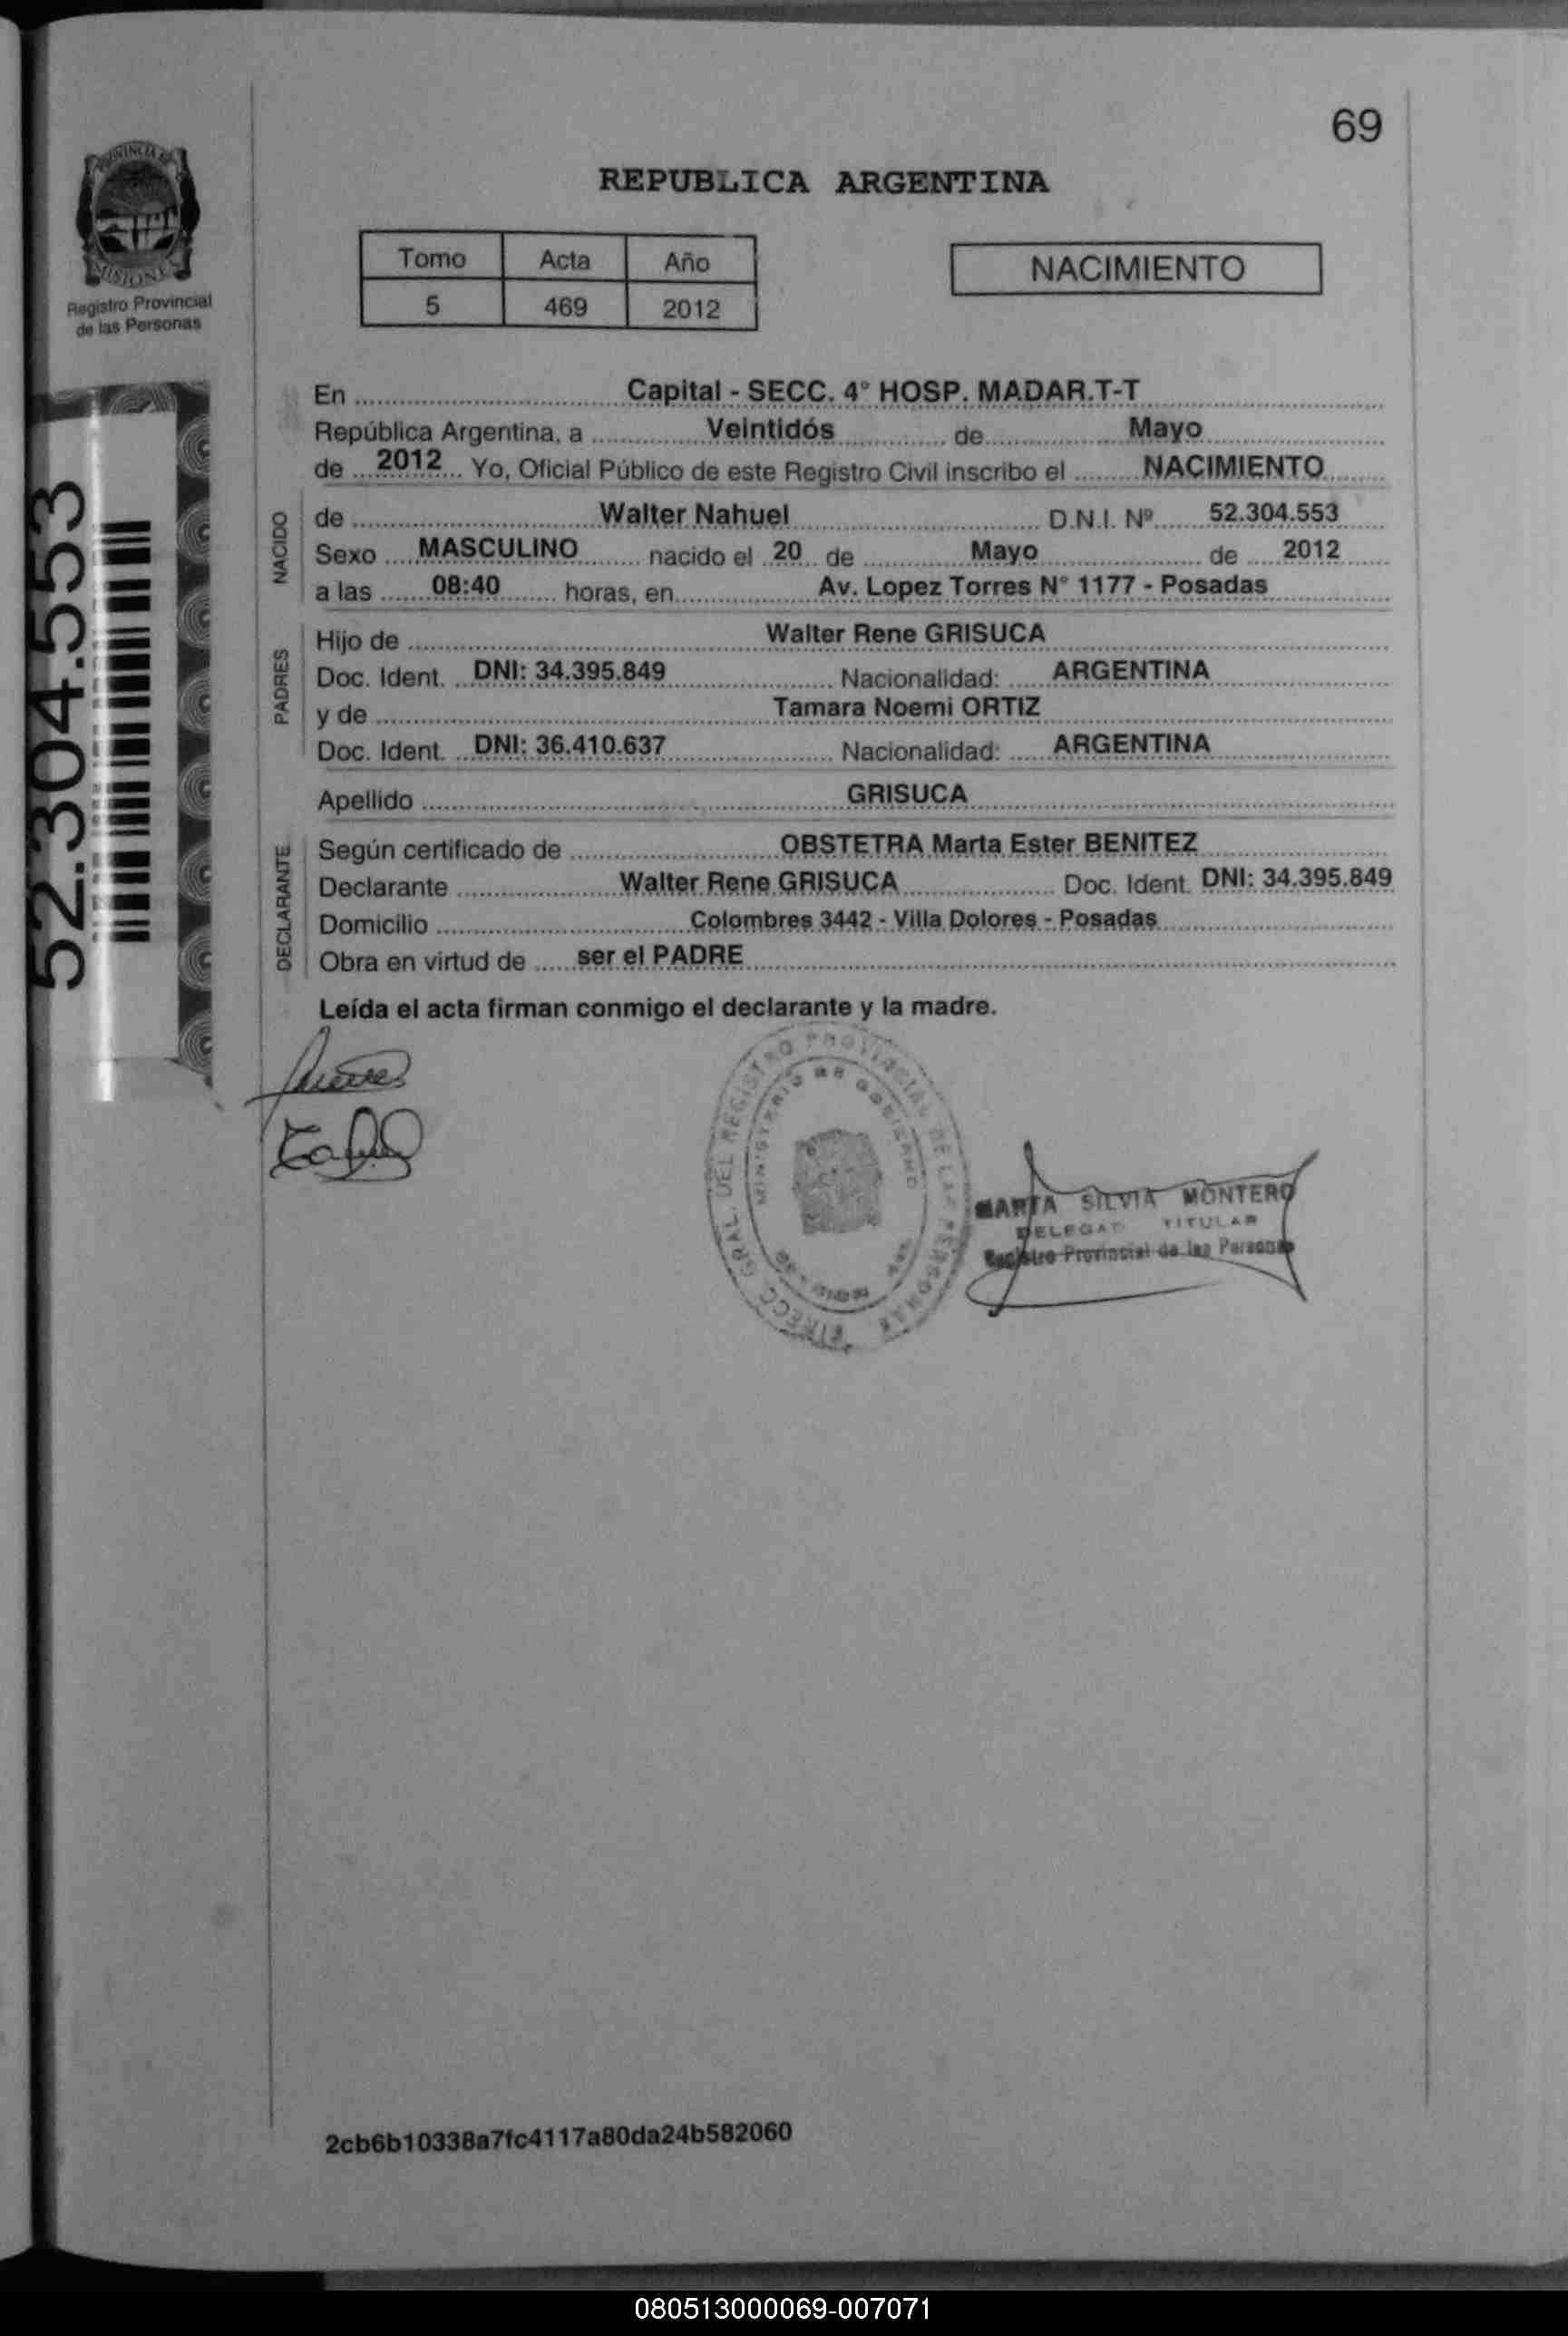 69
PROVINCIA DE
MISIONES
Registro Provincial
de las Personas
REPUBLICA ARGENTINA
Tomo Acta Año
5 469 2012
NACIMIENTO
52.304.553
En Capital - SECC. 4° HOSP. MADAR.T-T
República Argentina, a Veintidós de Mayo
de 2012 Yo, Oficial Público de este Registro Civil inscribo el NACIMIENTO
NACIDO
de Walter Nahuel D.N.I. Nº 52.304.553
Sexo MASCULINO nacido el 20 de Mayo de 2012
a las 08:40 horas, en Av. Lopez Torres N° 1177 - Posadas
PADRES
Hijo de Walter Rene GRISUCA
Doc. Ident. DNI: 34.395.849 Nacionalidad: ARGENTINA
y de Tamara Noemi ORTIZ
Doc. Ident. DNI: 36.410.637 Nacionalidad: ARGENTINA
Apellido GRISUCA
DECLARANTE
Según certificado de OBSTETRA Marta Ester BENITEZ
Declarante Walter Rene GRISUCA Doc. Ident. DNI: 34.395.849
Domicilio Colombres 3442 - Villa Dolores - Posadas
Obra en virtud de ser el PADRE
Leída el acta firman conmigo el declarante y la madre.
GRAL. DEL REGISTRO PROVINCIAL DE LAS PERSONAS
MINISTERIO DE GOBIERNO
MARTA SILVIA MONTERO
TITULAR
Registro Provincial de las Personas
2cb6b10338a7fc4117a80da24b582060
080513000069-007071